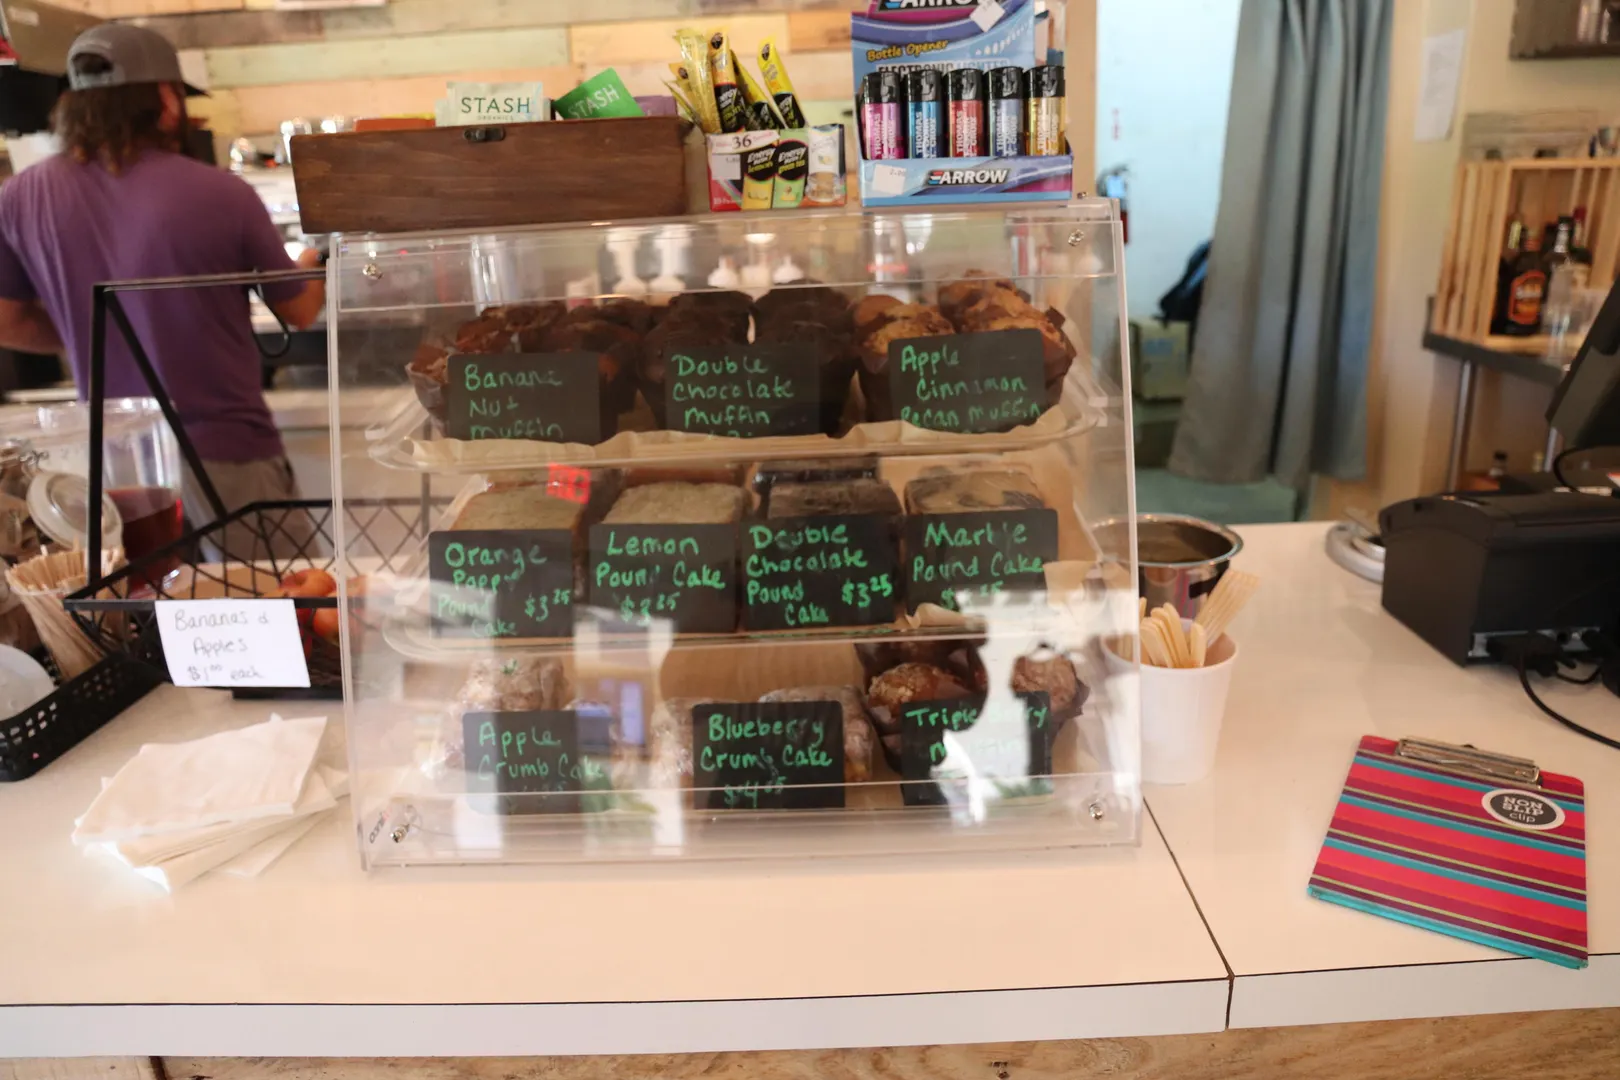 ARROW
Bottle Opener
ELECTRONIC LIGHTER
STASH
ORGANICS
STASH
36
Energy
Energy
THOMAS
THOMAS
THOMAS
THOMAS
THOMAS
ARROW
Banana
Nut
Muffin
Double
Chocolate
Muffin
Apple
Cinnamon
Pecan Muffin
Orange
Poppy
Pound $3.25
Cake
Lemon
Pound Cake
$3.25
Double
Chocolate
Pound $3.25
Cake
Marble
Pound Cake
Bananas &
Apples
$1.00 each
Apple
Crumb Cake
Blueberry
Crumb Cake
Triple Berry
NON
SLIP
clip